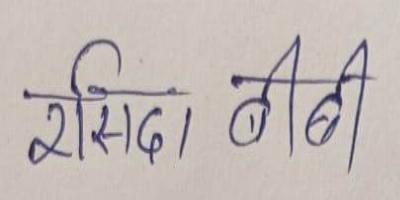 रसिदा बीबी